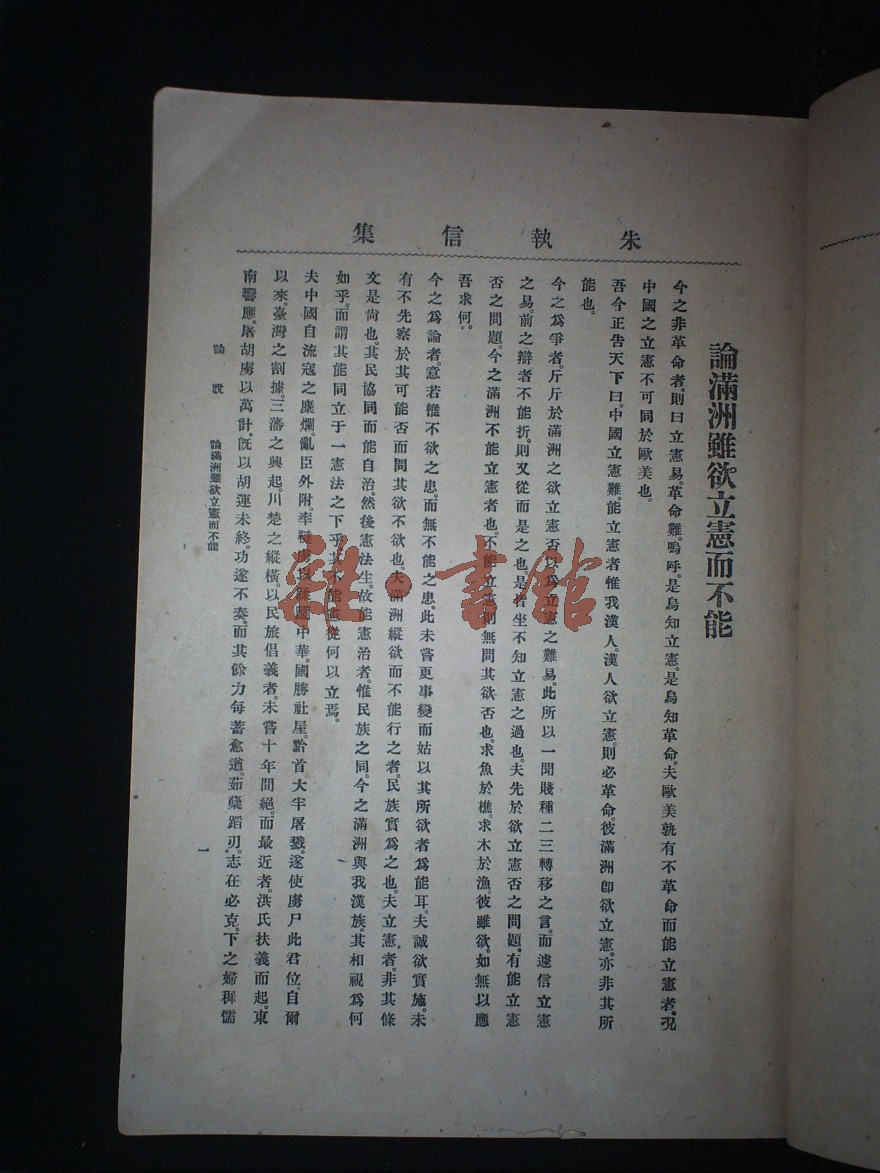 朱執信集
論滿洲雖欲立憲而不能
今之非革命者。則曰立憲易。革命難。嗚呼。是烏知立憲。是烏知革命。夫歐美孰有不革命而能立憲者。況
中國之立憲不可同於歐美也。
吾今正告天下曰。中國立憲難。能立憲者惟我漢人。漢人欲立憲。則必革命。彼滿洲卽欲立憲。亦非其所
能也。
今之爲爭者。斤斤於滿洲之欲立憲否以爲立憲之難易。此所以一聞賤種二三轉移之言。而遽信立憲
之易。前之辯者不能折。則又從而是之也。是皆坐不知立憲之過也。夫先於欲立憲否之問題。有能立憲
否之問題。今之滿洲不能立憲者也。不能立憲則無問其欲否也。求魚於樵。求木於漁。彼雖欲。如無以應
吾求何。
今之爲論者。意若惟不欲之患。而無不能之患。此未嘗更事變而姑以其所欲者爲能耳。夫誠欲實施。未
有不先察於其可能否而問其欲不欲也。夫滿洲縱欲而不能行之者。民族實爲之也。夫立憲者。非其條
文是尙也。其民協同而能自治。然後憲法生。故能憲治者。惟民族之同。今之滿洲與我漢族。其相視爲何
如乎。而謂其能同立于一憲法之下乎。其不能憲從何以立焉。
夫中國自流寇之糜爛。亂臣外附。率虜以中華。國勝社屋。黔首大半屠戮。遂使虜尸此君位。自爾
以來。臺灣之割據。三藩之興起。川楚之縱橫。以民族倡義者。未嘗十年間絕。而最近者。洪氏扶義而起。東
南響應。屠胡虜以萬計。旣以胡運未終。功遂不奏。而其餘力每蓄愈遒。茹蘗蹈刃。志在必克。下之婦稺懦
論說 論滿洲雖欲立憲而不能
一
雜·書館